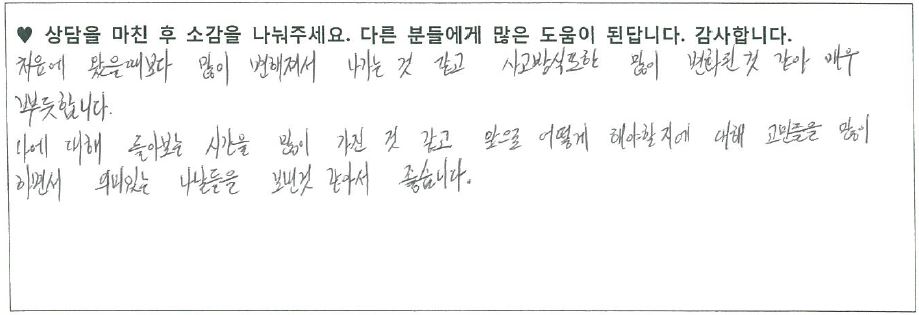 ♥ 상담을 마친 후 소감을 나눠주세요. 다른 분들에게 많은 도움이 된답니다. 감사합니다.
처음에 왔을때보다 많이 변해져서 나가는 것 같고 사고방식또한 많이 변화된것 같아 매우
뿌듯합니다.
나에 대해 돌아보는 시간을 많이 가진 것 같고 앞으로 어떻게 해야할지에 대해 고민들을 많이
하면서 의미있는 나날들을 보낸것 같아서 좋습니다.